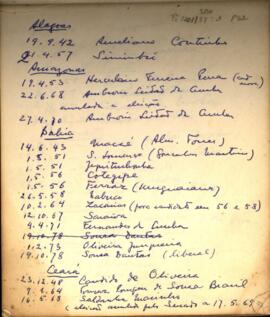 Alagoas
19.9.42 Aureliano Coutinho
21.4.57 Sinimbú
Amazonas
19.4.53 Herculano Ferreira Pena
22.6.68 Ambrosio Leitão da Cunha
anulada a eleição
27.4.70 Ambrosio Leitão da Cunha
Bahia
14.6.43 Macaé (Alm. Torres)
1.5.51 S. Lourenço
1.5.51 Jequitinhonha
1.5.56 Cotegipe
1.5.56 Ferraz (Uruguaiana)
26.5.58 Nabuco
10.2.64 Zacarias (fora candidato em 56 e 58)
12.10.67 Saraiva
9.4.71 Fernandes da Cunha
19.10.78 Souza Dantas
1.2.73 Oliveira Junqueira
19.10.78 Souza Dantas (liberal)
Ceará
23.12.48 Candido de Oliveira
7.4.64 Souza Brasil
16.5.68 Saldanha Marinho
(eleição anulada pelo Senado a 17.5.69)